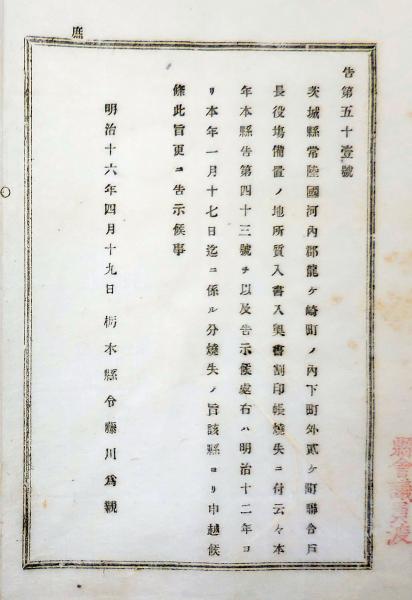 庶
告第五十壹號
茨城縣常陸國河內郡龍ケ崎町ノ內下町外貳ケ町聯合戶
長役塲備置ノ地所質入書入奧書割印帳燒失ニ付云々本
年本縣告第四十三號ヲ以及告示候處右ハ明治十二年ヨ
リ本年一月十七日迄ニ係ル分燒失ノ旨該縣ヨリ申越候
條此旨更ニ告示候事
明治十六年四月十九日 栃木縣令藤川爲親